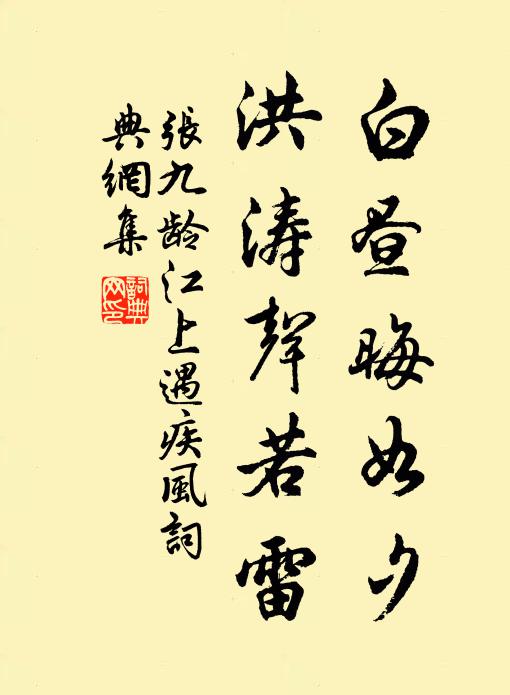 白昼晦如夕
洪涛聲若雷
張九龄江上遇疾風詞
典網集
詞典
网印